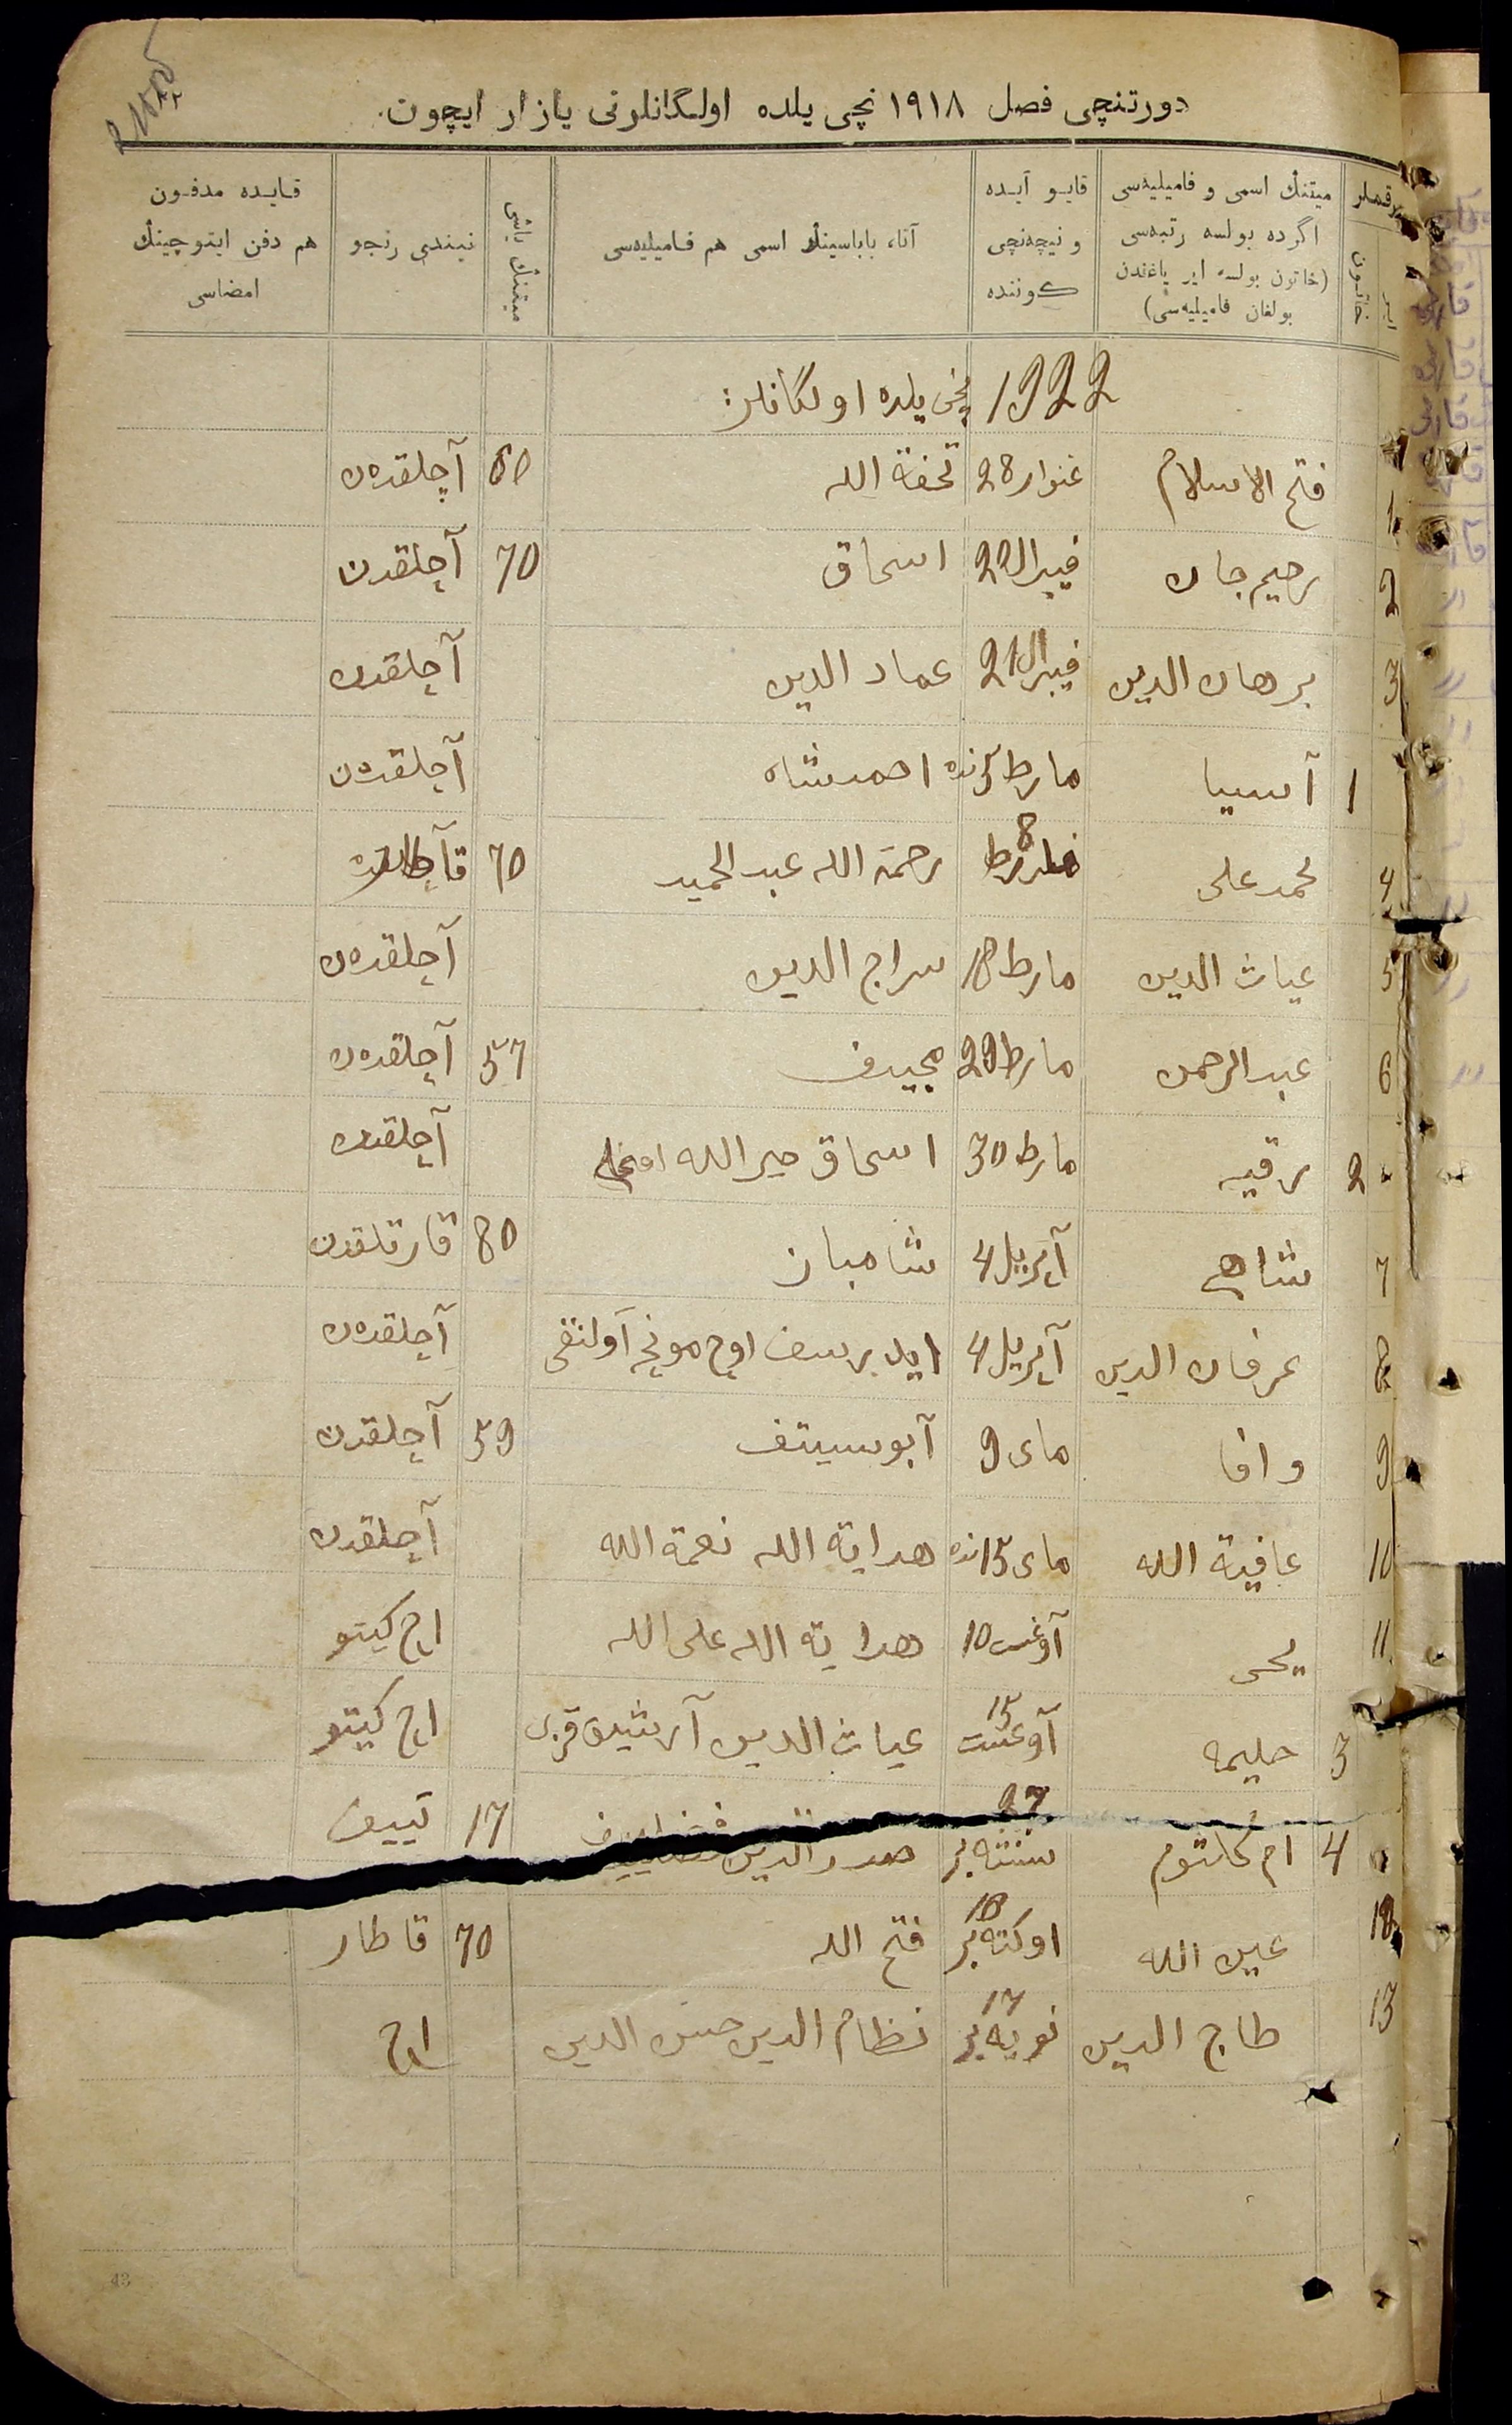 دورتنچی فصل ١٩١٨ نچی یلده اولگانلرنی یازار ایچون.
رقملر
ایر
خاتون
میتنڭ اسمی و فامیلیەسی
اگرده بولسه رتبەسی
(خاتون بولسه ایر یاغندن
بولغان فامیلیەسی)
قایو آیده
و نیچەنچی
کوننده
آتا، باباسینڭ اسمی هم فامیلیەسی
میتنڭ یاشی
نیندی رنجو
قایده مدفون
هم دفن ایتوچینڭ
امضاسی
1922 نچی یلده اولگانلر:
1 فتح الاسلام غنوار 28 تحفة الله 60 آچلقدن
2 رحیم جان فیبرال 22 اسحاق 70 آچلقدن
3 برهان الدین فیبرال 21 عماد الدین آچلقدن
1 آسیا مارط 5 نده احمدشاه آچلقدن
4 محمد علی 8 مارط رحمة الله عبد الحمید 70
5 غیاث الدین مارط 18 سراج الدین آچلقدن
6 عبد الرحمن مارط 29 مجیدف 57 آچلقدن
2 رقیه مارط 30 اسحاق خیر الله آچلقدن
7 شاهی آپریل 4 شاهباز 80 قارتلقدن
8 عرفان الدین آپریل 4 آچلقدن
9 وافا مای 9 آبوسیتف 59 آچلقدن
10 عافیة الله مای 15 نده هدایة الله نعمة الله آچلقدن
11 یحیی آوغست 10 هدایة الله علی الله اچ کیتو
3 حلیمه آوغست 15 غیاث الدین اچ کیتو
4 ام کلثوم سنتەبر 27 صدر الدین 17 تییف
12 عین الله اوکتەبر 18 فتح الله 70 قاطار
13 طاج الدین نویەبر 17 نظام الدین حسن الدین اچ
43